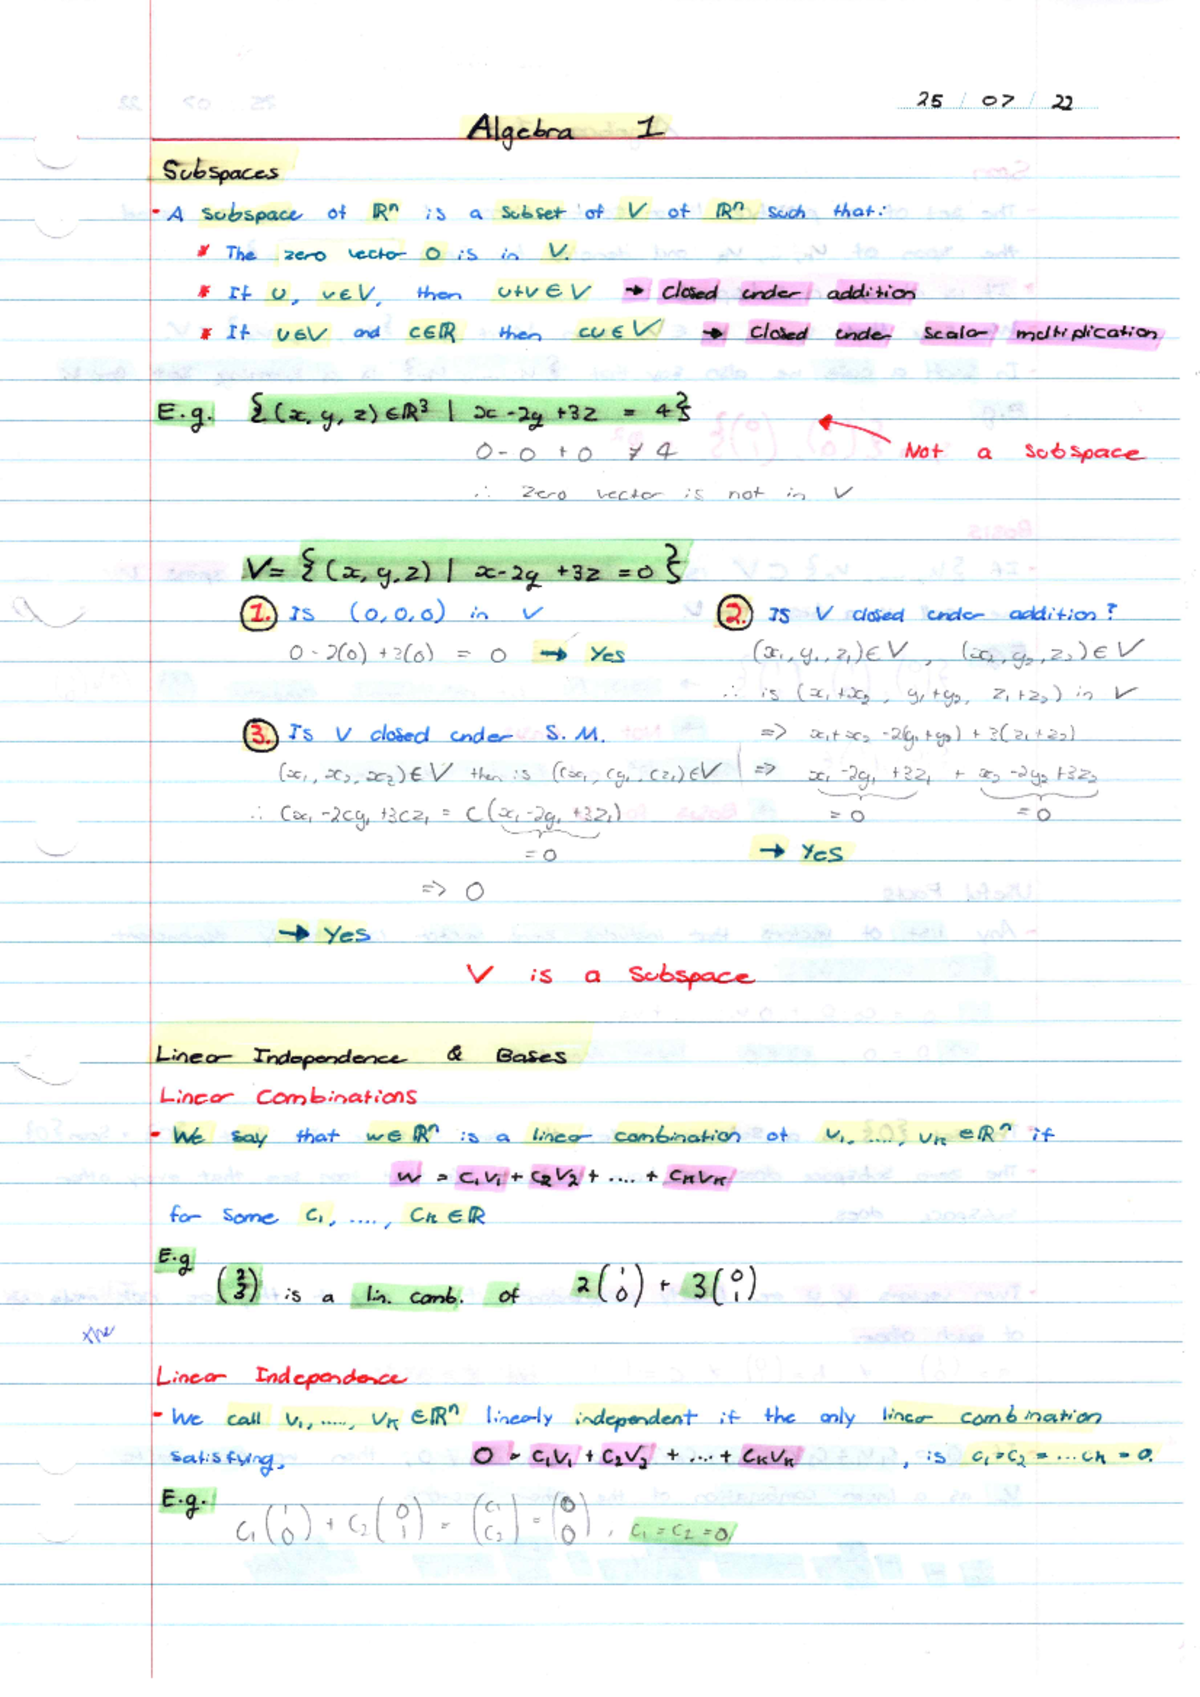 25 / 07 / 22
Algebra 1
Subspaces
- A subspace of ℝⁿ is a subset of V of ℝⁿ such that:
* The zero vector 0 is in V.
* If u, v∈V, then u+v∈V → closed under addition
* If u∈V and c∈ℝ then cu∈V → closed under scalar multiplication
E.g. {(x, y, z)∈ℝ³ | x-2y+3z = 4}
0-0+0 ≠ 4
Not a subspace
∴ zero vector is not in V
V= {(x, y, z) | x-2y+3z=0}
1. Is (0,0,0) in V
0-2(0)+3(0) = 0 → Yes
2. Is V closed under addition?
(x₁, y₁, z₁)∈V, (x₂, y₂, z₂)∈V
∴ is (x₁+x₂, y₁+y₂, z₁+z₂) in V
=> x₁+x₂-2(y₁+y₂)+3(z₁+z₂)
=> x₁-2y₁+3z₁ + x₂-2y₂+3z₂
=0 =0
→ Yes
3. Is V closed under S.M.
(x₁, x₂, x₂)∈V then is (cx₁, cy₁, cz₁)∈V
∴ cx₁-2cy₁+3cz₁ = c(x₁-2y₁+3z₁)
=0
=> 0
→ Yes
V is a Subspace
Linear Independence & Bases
Linear Combinations
- We say that w∈ℝⁿ is a linear combination of v₁, ...., vₖ∈ℝⁿ if
w = c₁v₁+c₂v₂+ .... + cₖvₖ
for some c₁, ...., cₖ∈ℝ
E.g
(2 3) is a lin. comb. of 2(1 0) + 3(0 1)
Linear Independence
- We call v₁, ....., vₖ∈ℝⁿ linearly independent if the only linear combination
satisfying, 0 = c₁v₁+c₂v₂ + ... + cₖvₖ, is c₁=c₂= ...cₖ=0.
E.g. c₁(1 0) + c₂(0 1) = (c₁ c₂) = (0 0), c₁=c₂=0